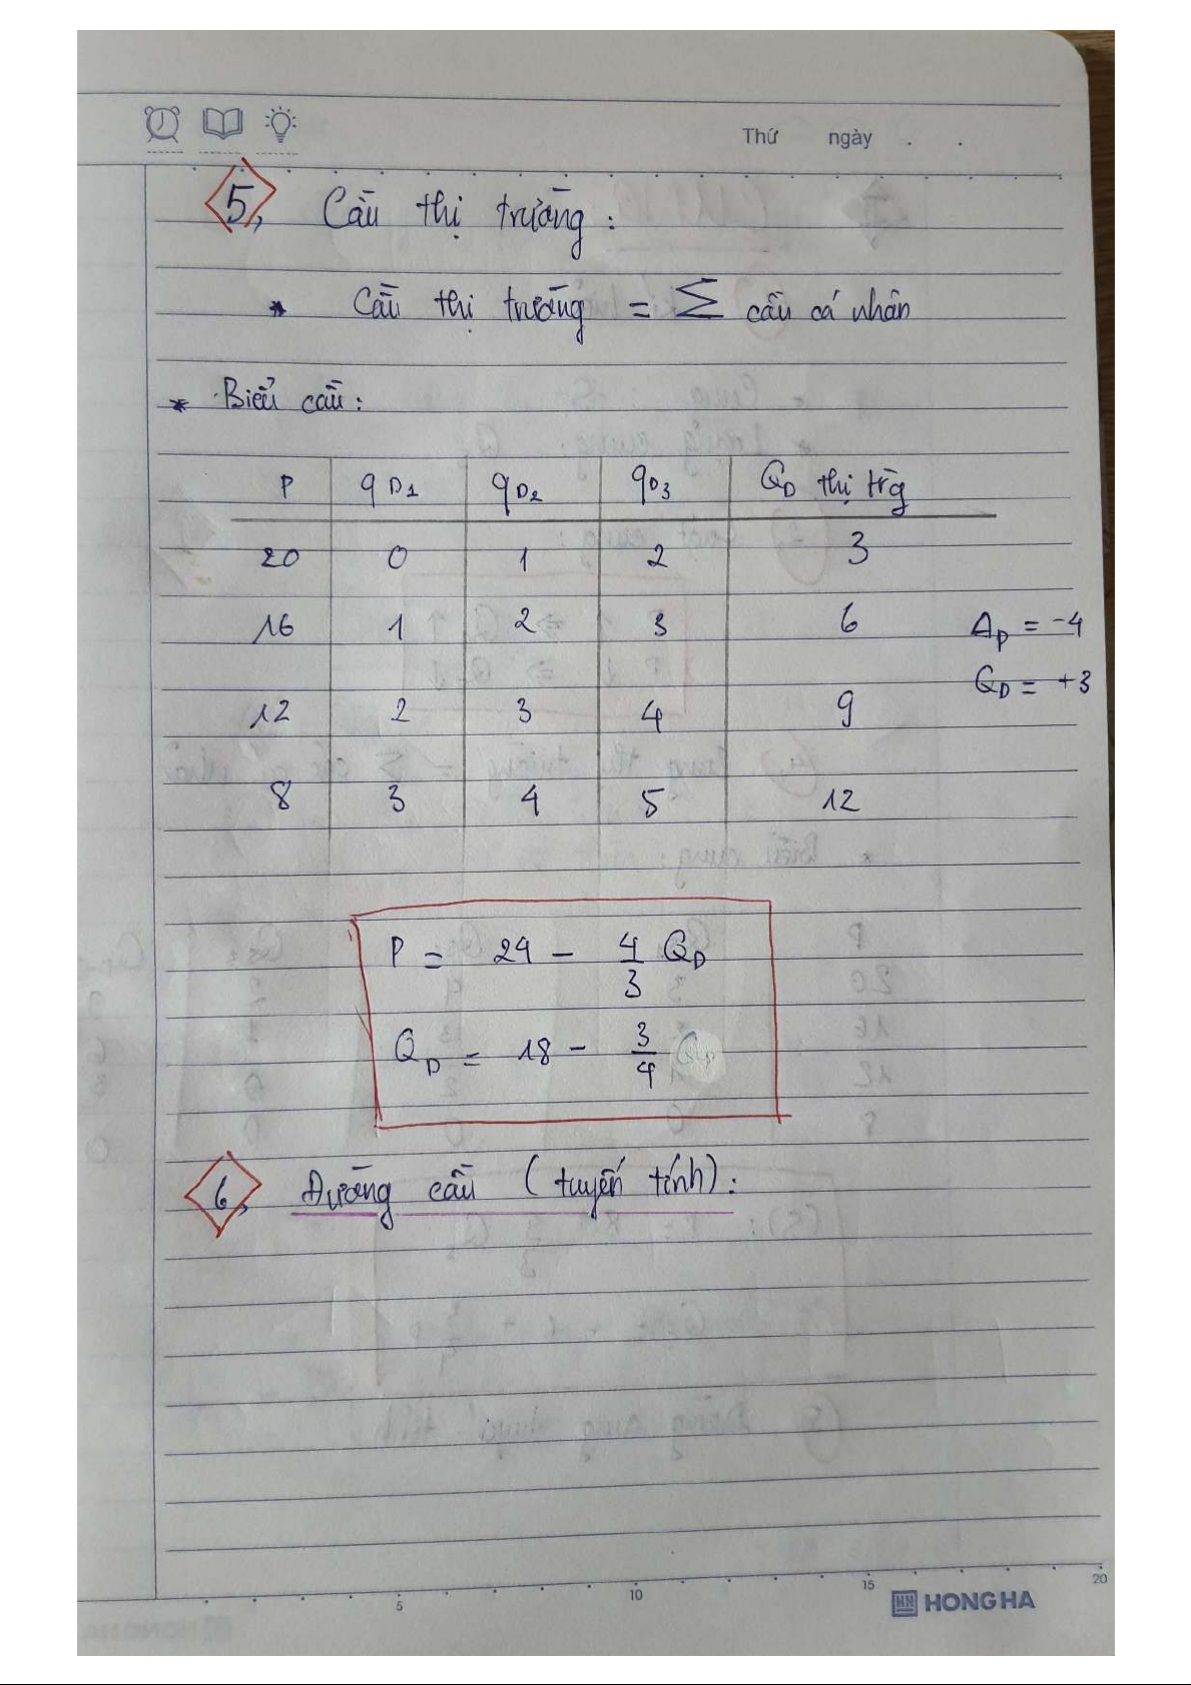 Thứ ngày . .
5, Cầu thị trường :
* Cầu thị trường = Σ cầu cá nhân
* Biểu cầu :
P qD1 qD2 qD3 QD thị trg
20 0 1 2 3
16 1 2 3 6
Δp = -4
QD = +3
12 2 3 4 9
8 3 4 5 12
P = 24 - 4/3 QD
QD = 18 - 3/4
6, Đường cầu (tuyến tính) :
5 10 15 20
HONG HA